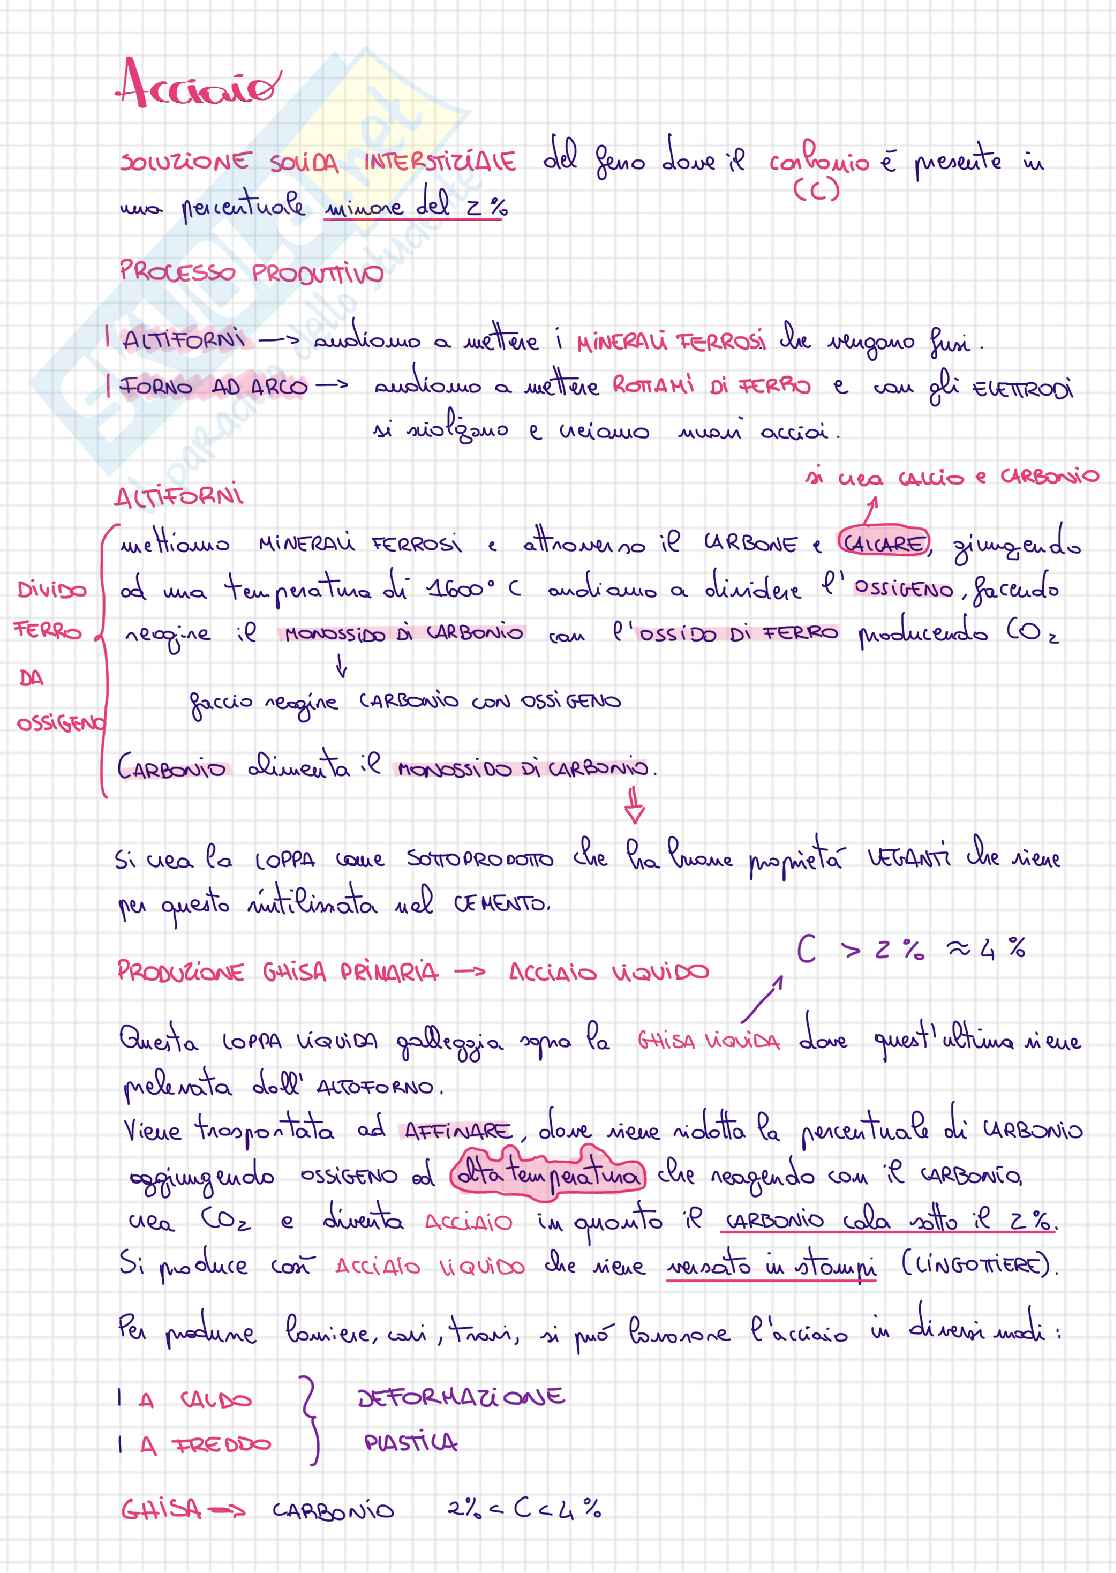 Acciaio
SOLUZIONE SOLIDA INTERSTIZIALE del ferro dove il carbonio è presente in
(C)
una percentuale minore del 2%
PROCESSO PRODUTTIVO
| ALTIFORNI —> andiamo a mettere i MINERALI FERROSI che vengono fusi.
| FORNO AD ARCO —> andiamo a mettere ROTTAMI DI FERRO e con gli ELETTRODI
si sciolgono e creiamo nuovi acciai.
si crea CALCIO e CARBONIO
ALTIFORNI
mettiamo MINERALI FERROSI e attraverso il CARBONE e CALCARE, giungendo
ad una temperatura di 1600° C andiamo a dividere l'OSSIGENO, facendo
reagire il MONOSSIDO DI CARBONIO con l'OSSIDO DI FERRO producendo CO2
DIVIDO
FERRO
DA
OSSIGENO
faccio reagire CARBONIO CON OSSIGENO
CARBONIO alimenta il MONOSSIDO DI CARBONIO.
Si crea la LOPPA come SOTTOPRODOTTO che ha buone proprietà LEGANTI che viene
per questo riutilizzata nel CEMENTO.
C > 2% ≈ 4%
PRODUZIONE GHISA PRIMARIA —> ACCIAIO LIQUIDO
Questa LOPPA LIQUIDA galleggia sopra la GHISA LIQUIDA dove quest'ultima viene
prelevata dall'ALTOFORNO.
Viene trasportata ad AFFINARE, dove viene ridotta la percentuale di CARBONIO
aggiungendo OSSIGENO ad alta temperatura che reagendo con il CARBONIO,
crea CO2 e diventa ACCIAIO in quanto il CARBONIO cala sotto il 2%.
Si produce così ACCIAIO LIQUIDO che viene versato in stampi (LINGOTTIERE).
Per produrre lamiere, cavi, travi, si può lavorare l'acciaio in diversi modi:
| A CALDO } DEFORMAZIONE
| A FREDDO PLASTICA
GHISA —> CARBONIO 2% < C < 4%